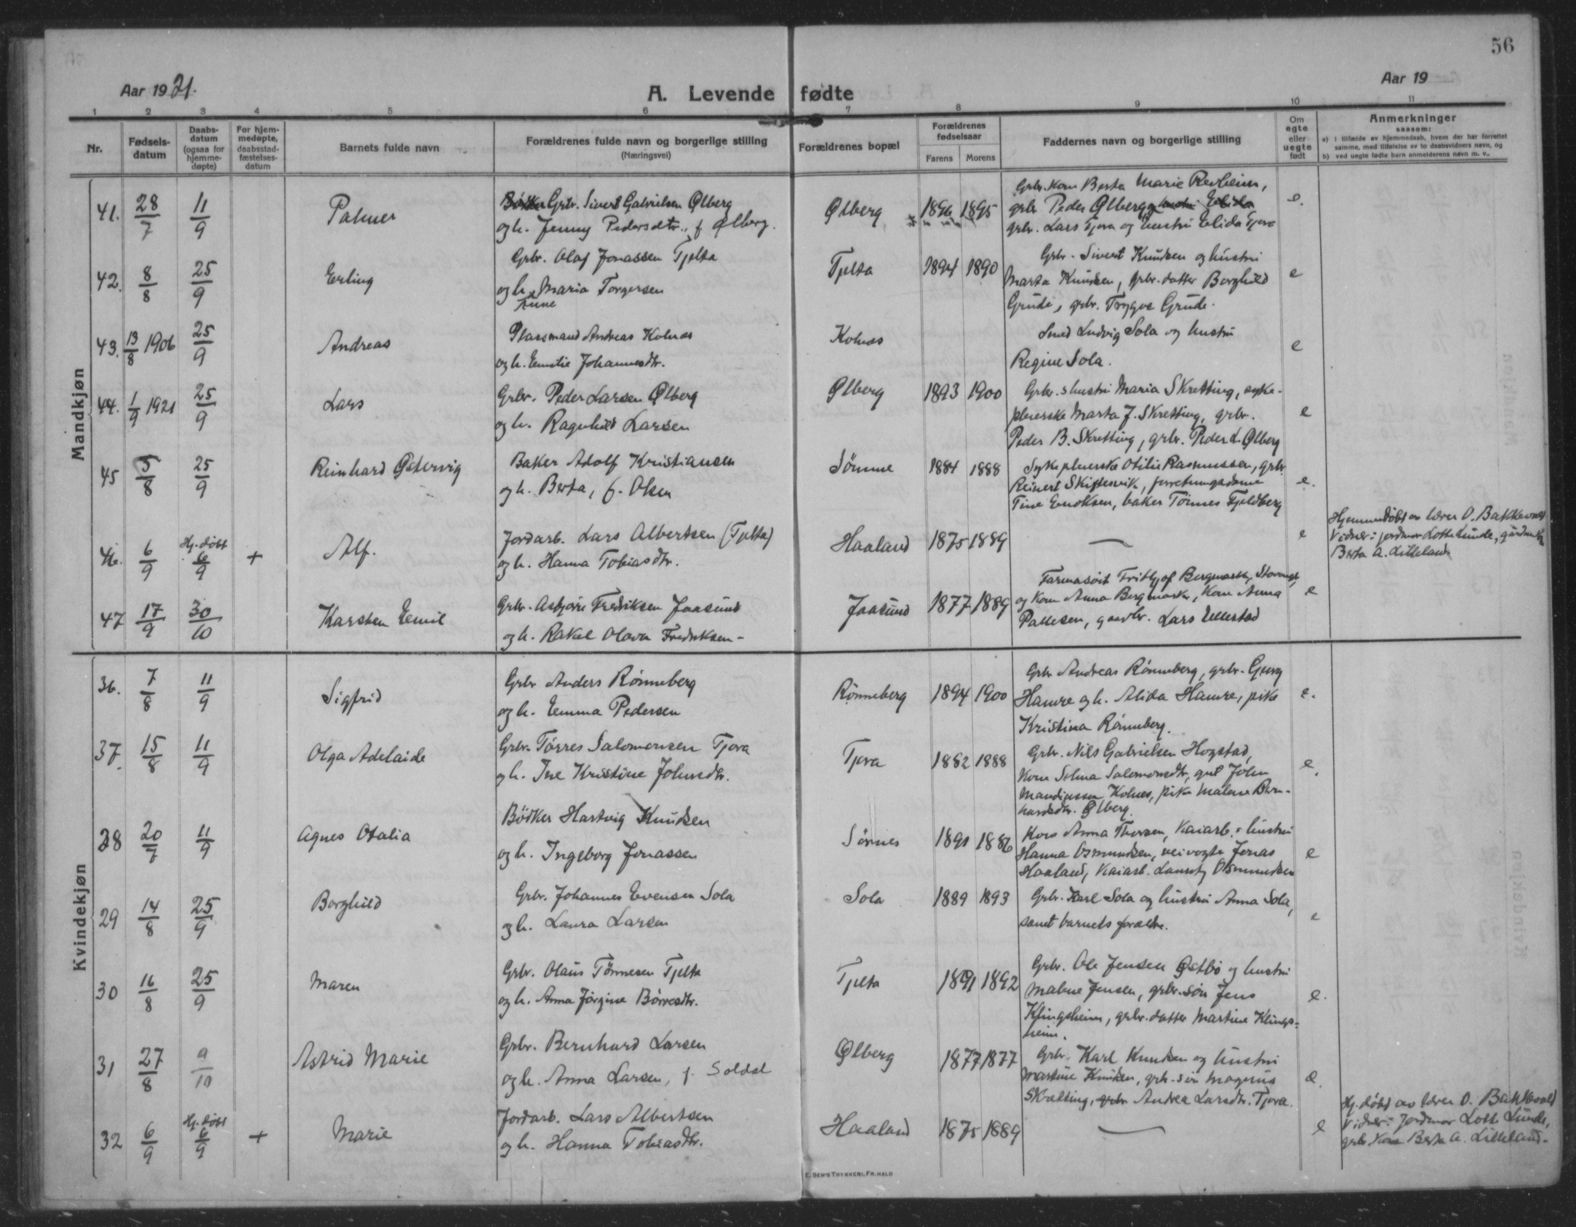 56
Aar 1921.
A. Levende fødte
Aar 19
1 2 3 4 5 6 7 8 9 10 11
Nr.
Fødsels-
datum
Daabs-
datum
(ogsaa for
hjemme-
døpte)
For hjem-
medøpte,
daabsstad-
fæstelses-
datum
Barnets fulde navn
Forældrenes fulde navn og borgerlige stilling
(Næringsvei)
Forældrenes bopæl
Forældrenes
fødselsaar
Farens Morens
Faddernes navn og borgerlige stilling
Om
egte
eller
uegte
født
Anmerkninger
saasom:
a) i tilfælde av hjemmedaab, hvem der har forrettet
samme, med tilføielse av to daabsvidners navn, og
b) ved uegte fødte barn anmelderens navn m. v.
Mandkjøn
41. 28/7 11/9 Palmer
Grbr. Sivert Gabrielsen Ølberg
og h. Jenny Pedersdtr., f. Ølberg.
Ølberg 1896 1895
Grbr. Kone Berta Marie Revheim,
grbr. Peder Ølberg
grbr. Lars Tjora og hustru Elida Tjora
e.
42. 8/8 25/9 Erling
Grbr. Olaf Jonassen Tjelta
og h. Maria Torgersen
Tjelta 1894 1890
Grbr. Sivert Knudsen og hustru
Marta Knudsen, grbr. datter Borghild
Grude, grbr. Trygve Grude.
e
43. 13/8 1906 25/9 Andreas
Plassmand Andreas Kolnes
og h. Emilie Johannesdtr.
Kolnes
Smed Ludvig Sola og hustru
Regine Sola.
e
44. 1/9 1921 25/9 Lars
Grbr. Peder Larsen Ølberg
og h. Ragnhild Larsen
Ølberg 1893 1900
Grbr.s hustru Maria Skretting, syke-
pleierske Marta J. Skretting, grbr.
Peder B. Skretting, grbr. Peder L. Ølberg
e
45 5/8 25/9 Reinhard Østervig
Baker Adolf Kristiansen
og h. Berta, f. Olsen
Sømme 1884 1888
Sykepleierske Otilie Rasmussen, grbr.
Reinert Skiftesvik, forretningsdame
Tine Enoksen, baker Tønnes Fjeldberg
e.
46. 6/9 Hj. døbt 6/9 + Alf.
Jordarb. Lars Albertsen (Tjelta)
og h. Hanna Tobiasdtr.
Haaland 1875 1889
—
e
Hjemmedøbt av lærer O. Bakkevold
Vidner: jordmor Lotte Lunde,
Berta A. Lilleland
47 17/9 30/10 Karsten Emil
Grbr. Asbjørn Fredriksen Jaasund
og h. Rakel Olava Fredriksen -
Jaasund 1877 1889
Farmasøit Fritjof Bergmark,
og Kone Anna Bergmark, Kone Anna
Pallesen, gaardbr. Lars Ellestad
e
Kvindekjøn
36. 7/8 11/9 Sigfrid
Grbr Anders Rønneberg
og h. Emma Pedersen
Rønneberg 1894 1900
Grbr Andreas Rønneberg, grbr. Georg
Hamre og h. Alida Hamre, pike
Kristina Rønneberg.
e.
37. 15/8 11/9 Olga Adelaide
Grbr. Tørres Salomonsen Tjora
og h. Ine Kristine Johnsdtr.
Tjora 1882 1888
Grbr. Nils Gabrielsen Hogstad,
Kone Selma Salomonsdtr, John
Kolnes, pike Malene Bern-
hardsdtr. Ølberg.
e.
28 20/7 11/9 Agnes Otalia
Bødker Hartvig Knudsen
og h. Ingeborg Jonassen
Sømnes 1891 1886
Kone Anna Thorsen, Kaiarb.s hustru
Hanna Osmundsen, veivogte Jonas
Haaland, Kaiarb. Osmundsen
e
29 14/8 25/9 Borghild
Grbr. Johannes Evensen Sola
og h. Laura Larsen
Sola 1889 1893
Grbr. Karl Sola og hustru Anna Sola,
samt barnets forældre.
e
30 16/8 25/9 Maren
Grbr. Olaus Tønnesen Tjelta
og h. Anna Jørgine Børresdtr.
Tjelta 1891 1892
Grbr. Ole Jensen Østbø og hustru
Malene Jensen, grbr. søn Jens
Klingsheim, grbr. datter Martine Klings-
heim.
e.
31 27/8 9/10 Astrid Marie
Grbr. Bernhard Larsen
og h. Anna Larsen, f. Soldal
Ølberg 1877 1877
Grbr. Karl Knudsen og hustru
Martine Knudsen, grbr. søn Magnus
Skretting, grbr Andrea Larsdtr. Tjora.
e.
32 6/9 Hj. døbt 6/9 + Marie
Jordarb. Lars Albertsen
og h. Hanna Tobiasdtr.
Haaland 1875 1889
—
e
Hj. døbt av lærer O. Bakkevold
Vidner: Jordmor Lotte Lunde,
grbr. Kone Berta A. Lilleland.